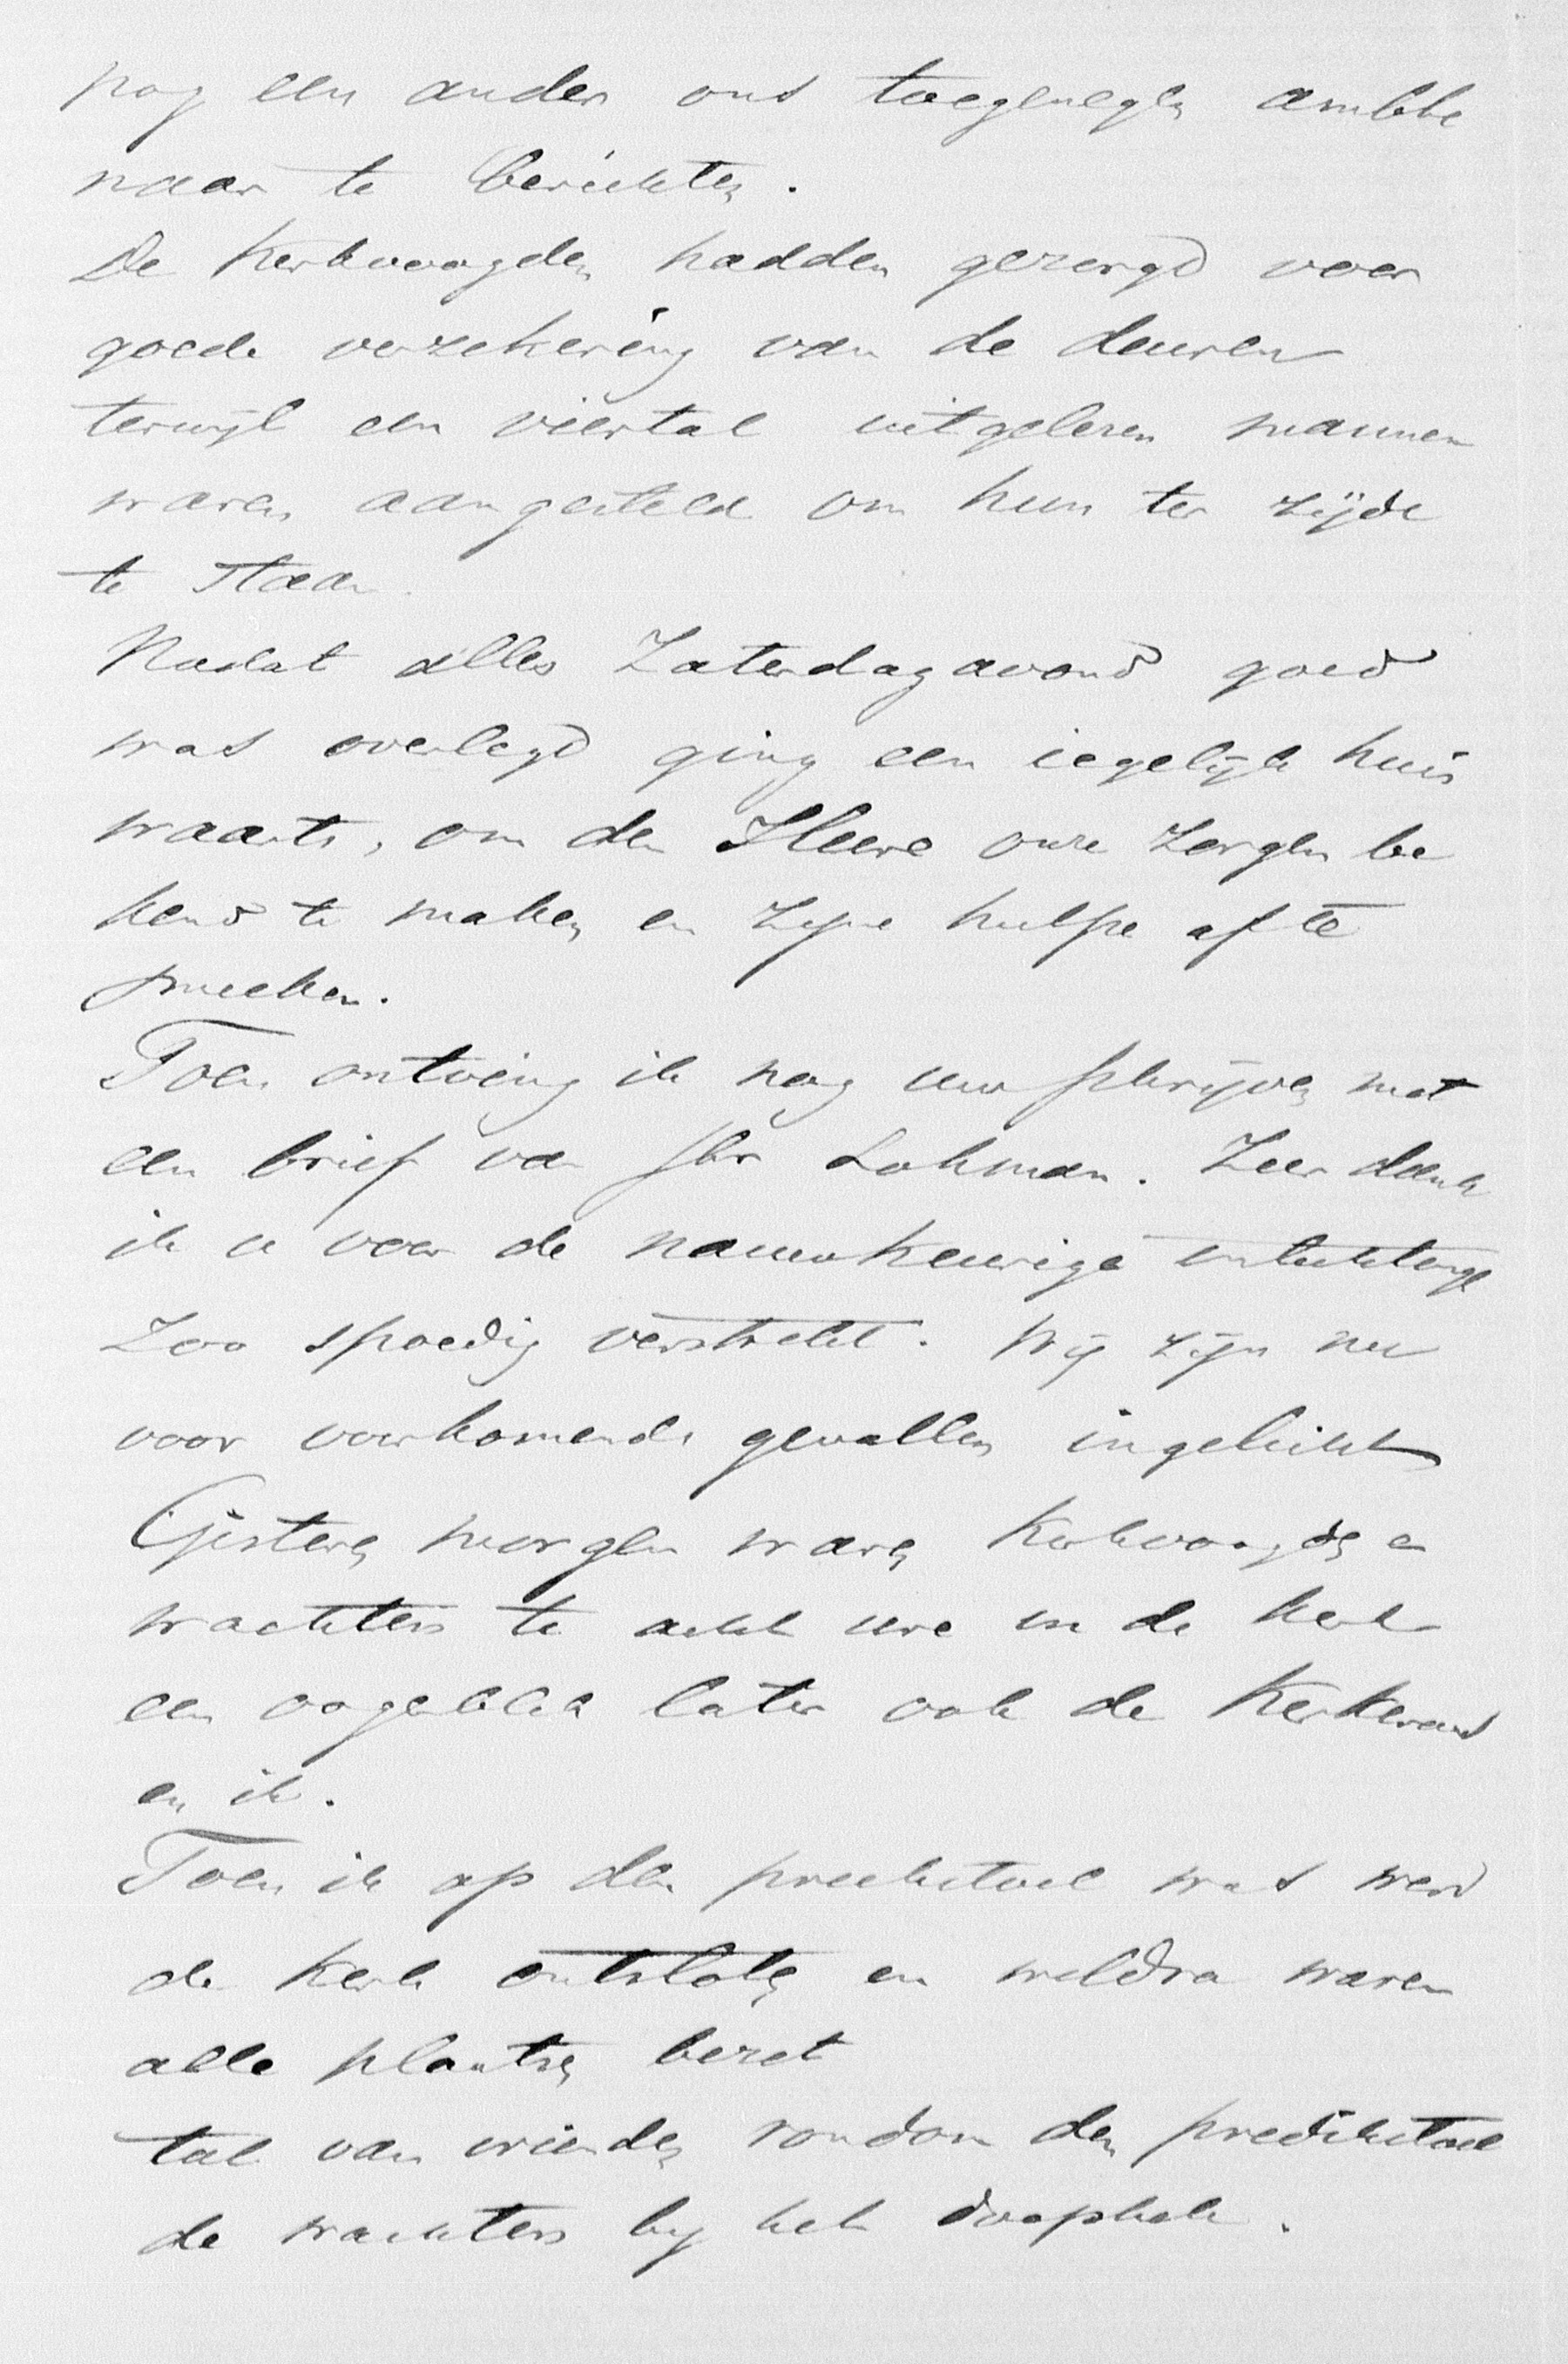 nog een ander ons toegenegen ambte
naar te berichten.
De Kerkvoogden hadden gezorgd voor
goede verzekering van de deuren
terwijl een viertal uitgelezen mannen
waren aangesteld om hun ter zijde
te staan.
Nadat alles Zaterdagavond goed
was overlegd ging een iegelijk huis
waarts, om den Heere onze zorgen be
kend te maken en Zijne hulpe af te
smeeken.
Toen ontving ik nog uw schrijven met
een brief van Jhr Lohman. Zeer dank
ik u voor de nauwkeurige inlichtingen
zoo spoedig verstrekt. Wij zijn nu
voor voorkomende gevallen ingelicht
Gisteren morgen waren Kerkvoogden en
wachters te acht ure in de kerk
een oogenblik later ook de Kerkeraad
en ik.
Toen ik op den preekstoel was werd
de Kerk ontsloten en weldra waren
alle plaatsen bezet
tal van vrienden rondom den predikstoel
de wachters bij het doophek.